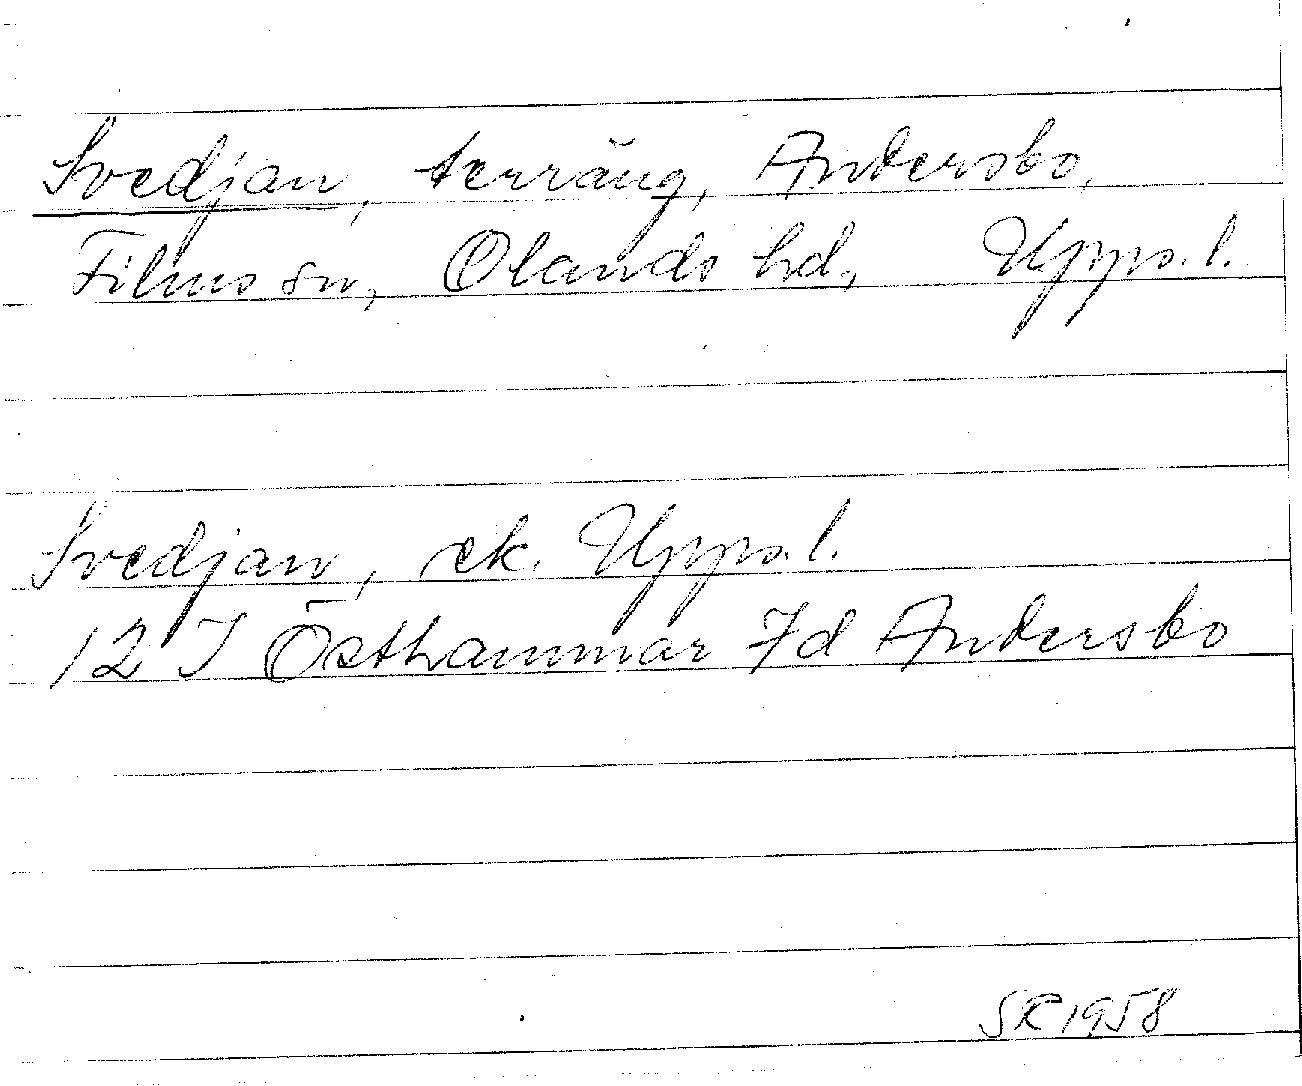 Svedjan, terräng, Andersbo,
Films sn, Olands hd, Upps. l.
Svedjan, ek. Upps. l.
12 I Östhammar 7d Andersbo
SR 1958